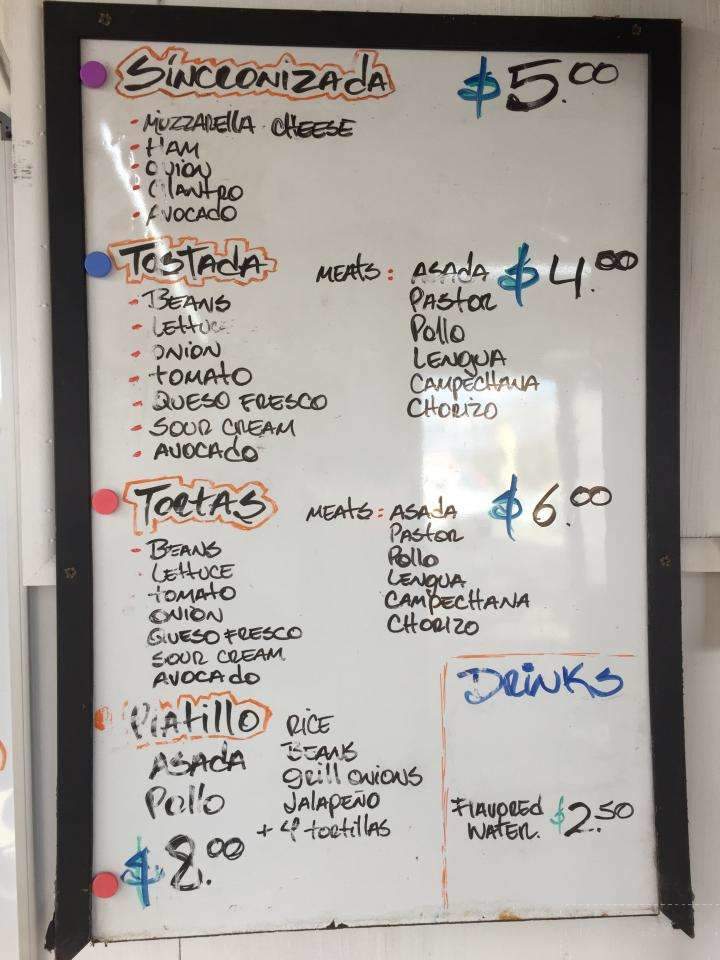 SINCRONIZADA $5.00
- MUZZARELLA CHEESE
- HAM
- ONION
- CILANTRO
- AVOCADO
TOSTADA MEATS: ASADA $4.00
- BEANS PASTOR
- LETTUCE Pollo
- ONION LENGUA
- TOMATO CAMPECHANA
- QUESO FRESCO CHORIZO
- SOUR CREAM
- AVOCADO
TORTAS MEATS: ASADA $6.00
- BEANS PASTOR
- LETTUCE Pollo
TOMATO LENGUA
ONION CAMPECHANA
QUESO FRESCO CHORIZO
SOUR CREAM
AVOCADO
Platillo RICE
ASADA BEANS
Pollo grill ONIONS
JALAPEÑO
+ 4 tortillas
$8.00
DRINKS
FLAVORED WATER. $2.50